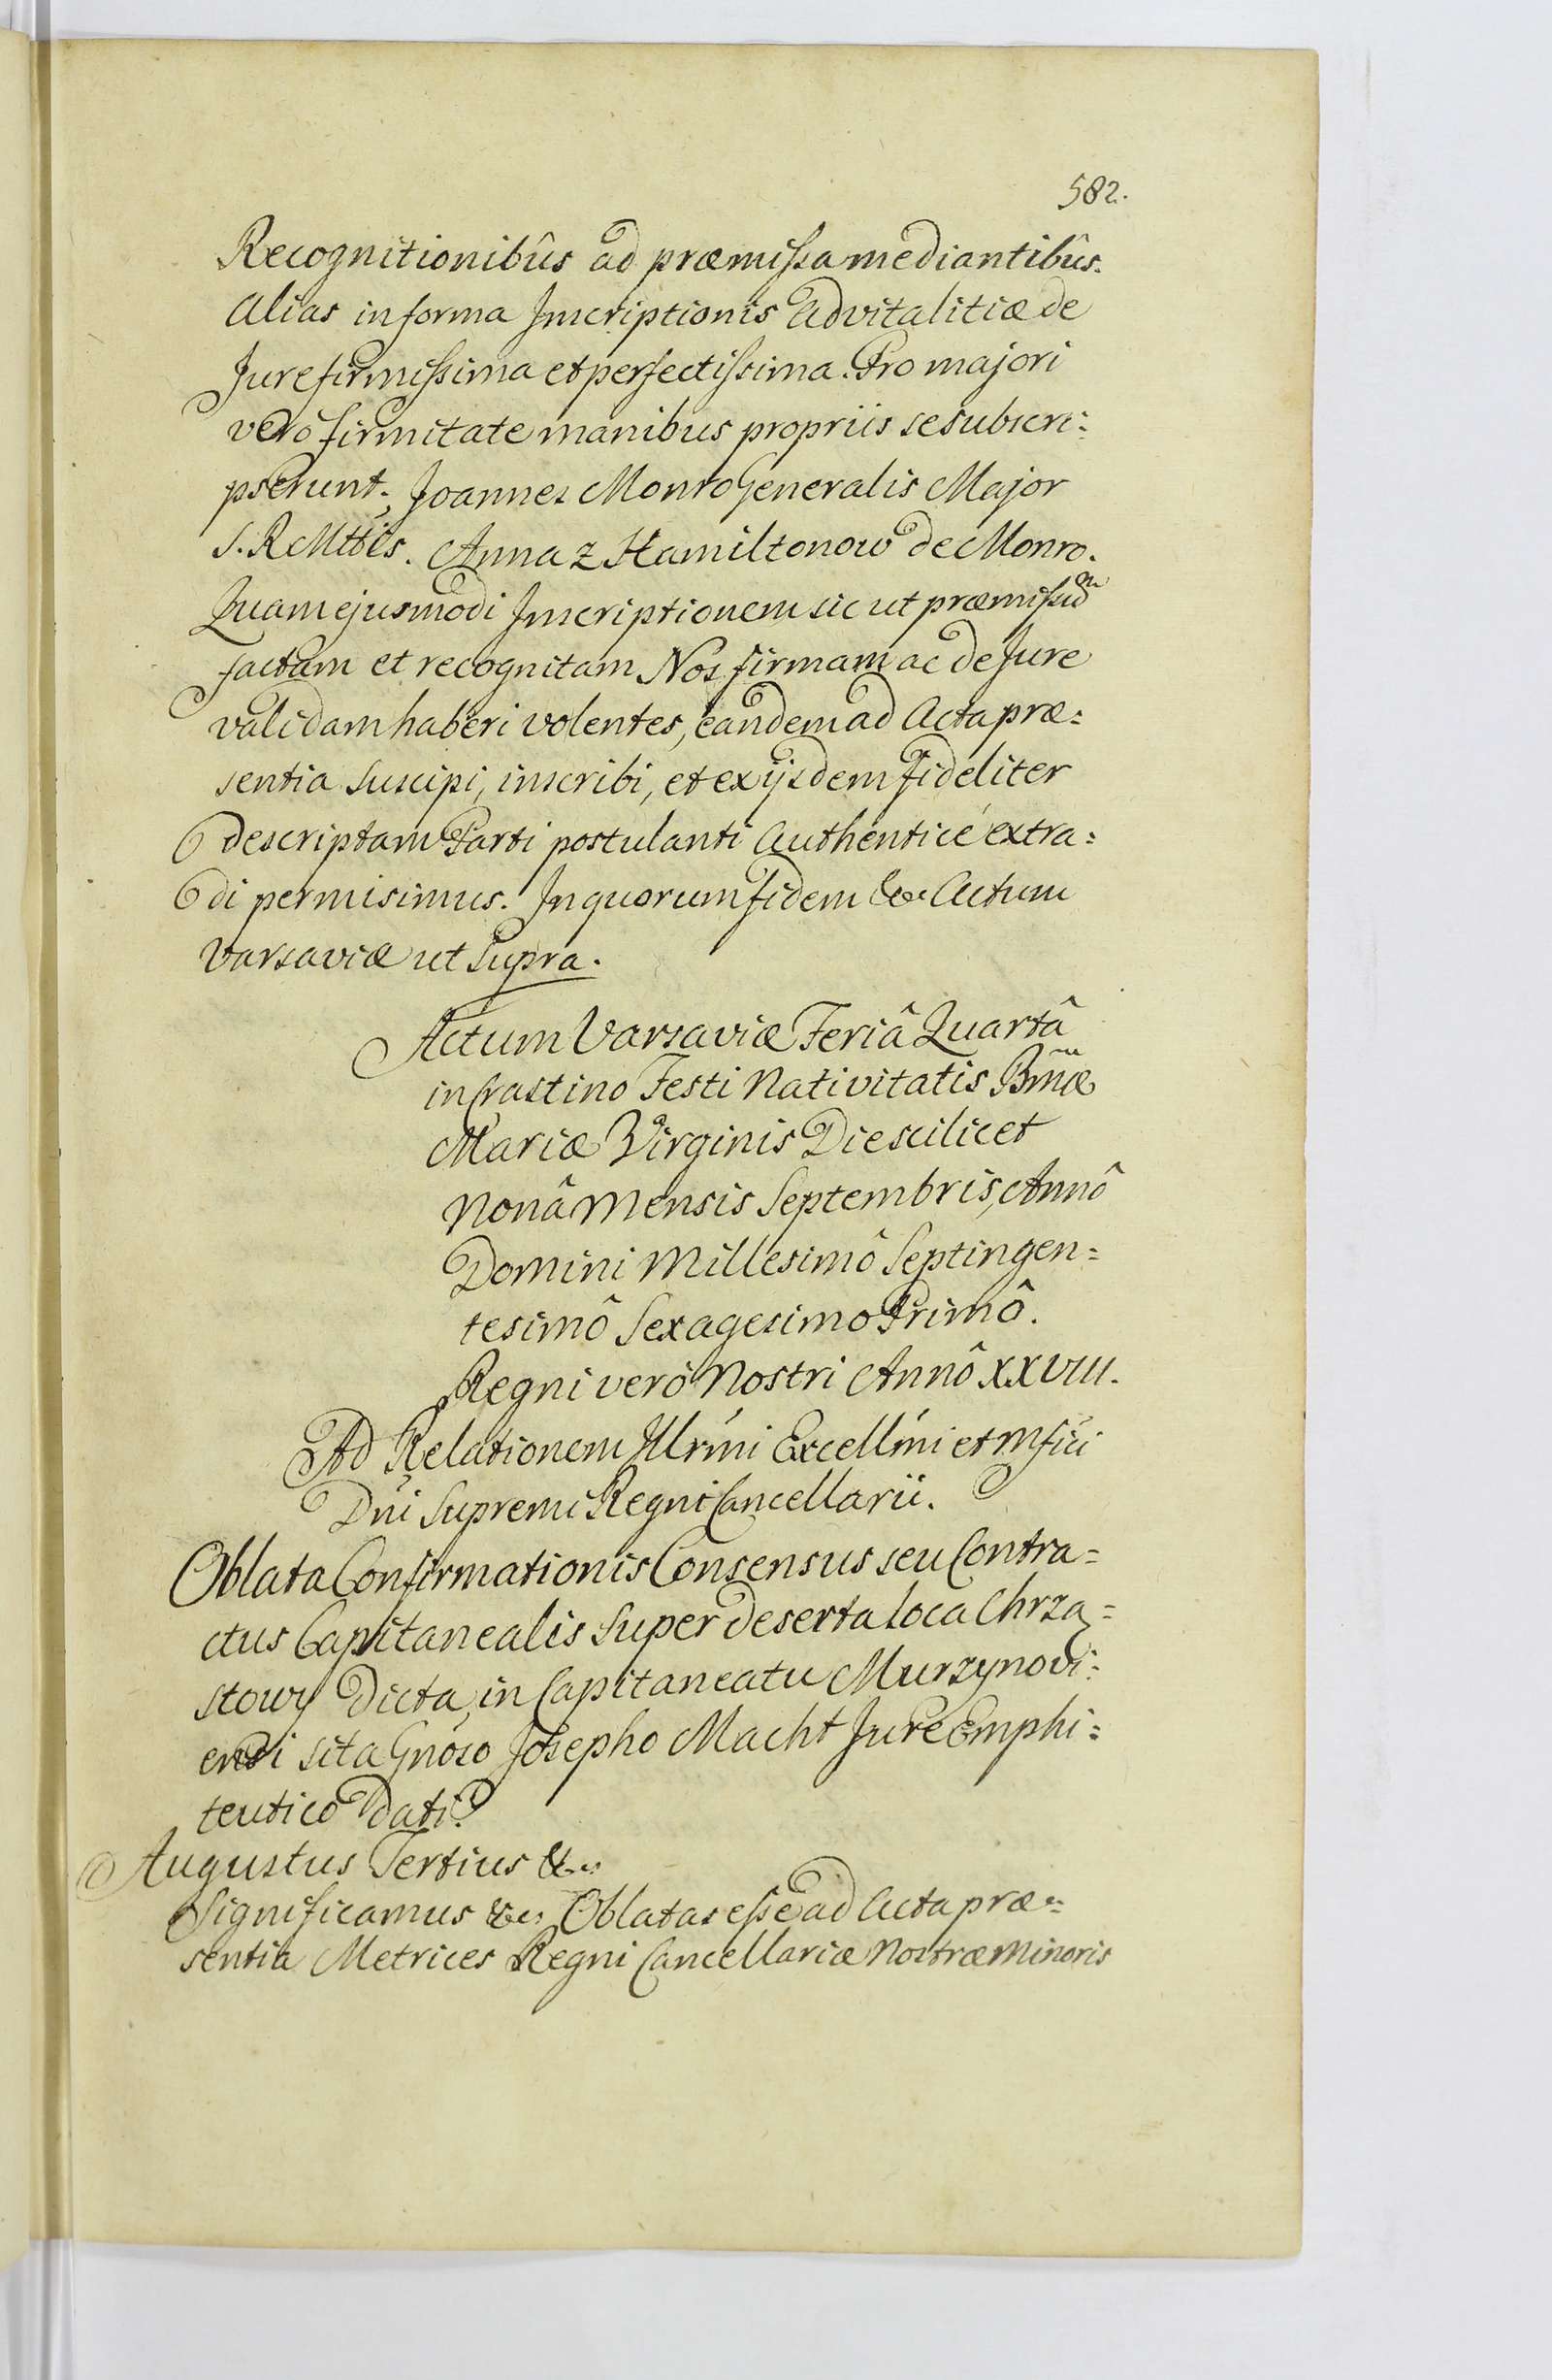 582.
Recognitionibûs ad præmissa mediantibûs.
Alias in forma Inscriptionis Advitalitiæ de
Jure firmissima et perfectissima. Pro majori
verò firmitate manibus propriis se subscri=
pserunt. Joannes Monro Generalis Major
S. R Mttis. Anna z Hamiltonow de Monro.
Quam ejusmodi Inscriptionem sic ut præmissũ
factam et recognitam Nos firmam ac de Jure
validam haberi volentes, eandem ad Acta præ=
sentia suscipi, inscribi, et ex ijsdem fideliter
descriptam Parti postulanti Authenticè extra=
di permisimus. In quorum fidem &c. Actum
Varsaviæ ut supra.
Actum Varsaviæ Feriâ Quartâ
in Crastino Festi Nativitatis Bmæ
Mariæ Virginis Die scilicet
Nonâ Mensis Septembris, Annô
Domini Millesimô Septingen=
tesimô Sexagesimo Primô.
Regni verò Nostri Annô XXVIII.
Ad Relationem Illrmi Excellmi et Mfici
Dni Supremi Regni Cancellarii.
Oblata Confirmationis Consensus seu Contra=
ctus Capitanealis super deserta loca Chrzą=
stowy dicta, in Capitaneatu Murzynovi=
ensi sita Gnoso Josepho Macht Jure Emphi=
teutico dati.
Augustus Tertius &c.
Significamus &c. Oblatas esse ad Acta præ=
sentia Metrices Regni Cancellariæ Nostræ Minoris